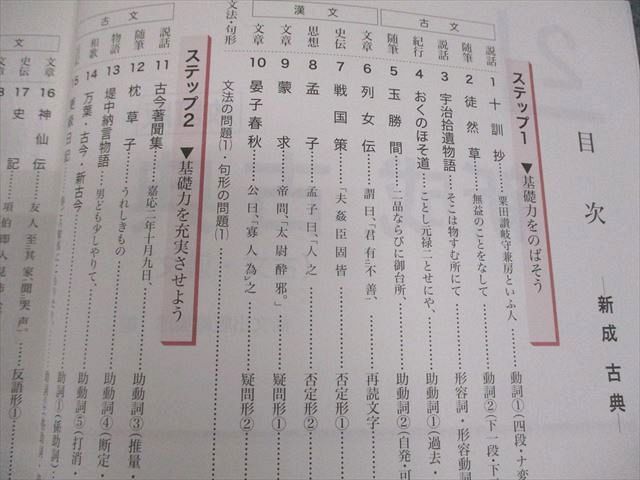 目次
―新成 古典―
ステップ1 ▼基礎力をのばそう
古文
説話 1 十訓抄 粟田讃岐守兼房といふ人 動詞①(四段・ナ変
随筆 2 徒然草 無益のことをなして 動詞②(下一段・下
説話 3 宇治拾遺物語 そこは物すむ所にて 形容詞・形容動詞
紀行 4 おくのほそ道 ことし元禄二とせにや、 助動詞①(過去・
随筆 5 玉勝間 二品ならびに御台所、 助動詞②(自発・可
漢文
文章 6 列女伝 謂曰、「君有二不善一、 再読文字
史伝 7 戦国策 「夫姦臣固皆 否定形①
思想 8 孟子 孟子曰、「人之 否定形②
文章 9 蒙求 帝問、「太尉酔邪。」 疑問形①
文章 10 晏子春秋 公曰、「寡人為レ之 疑問形②
文法・句形 文法の問題⑴・句形の問題⑴
ステップ2 ▼基礎力を充実させよう
古文
説話 11 古今著聞集 嘉応二年十月九日、 助動詞③(推量・
随筆 12 枕草子 うれしきもの 助動詞④(断定・
物語 13 堤中納言物語 男ども少しやりて、 助動詞⑤(打消・
和歌 14 万葉・古今・新古今 助詞①(係助詞
日記
文章 16 神仙伝 友人至二其家一、聞二哭声一、 反語形①
史伝 17 史記 項伯即入見沛
文章